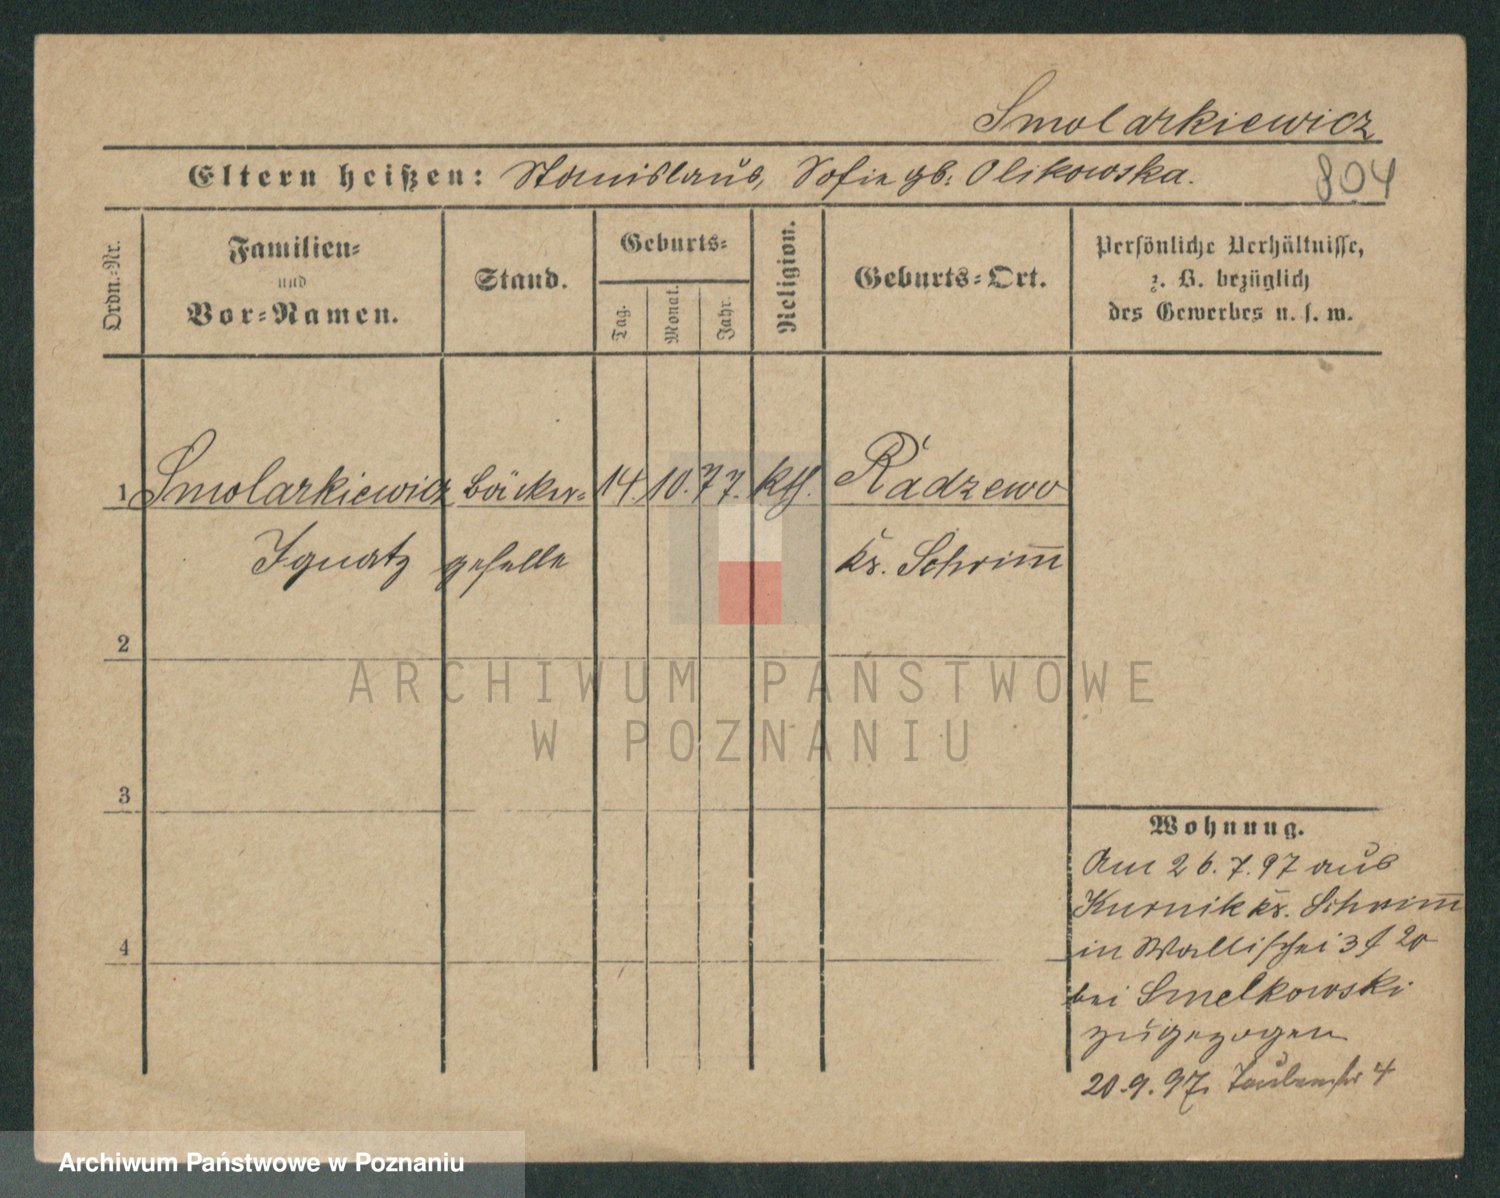 Smolarkiewicz
Eltern heißen: Stanislaus, Sofie gb: Olikowska.
804
Ordn.-Nr.
Familien-
und
Vor-Namen.
Stand.
Geburts-
Tag.
Monat.
Jahr.
Religion.
Geburts-Ort.
Persönliche Verhältnisse,
z. B. bezüglich
des Gewerbes u. s. w.
1 Smolarkiewicz Bäcker- 14. 10. 77. kth. Radzewo
Ignatz geselle kr. Schrim̅
2
ARCHIWUM PAŃSTWOWE
W POZNANIU
3
Wohnung.
Am 26.7.97 aus
Kurnik kr. Schrim̅
4
in Wallischei 3 20
bei Smelkowski
zugezogen
20.9.97. Taubenstr 4
Archiwum Państwowe w Poznaniu